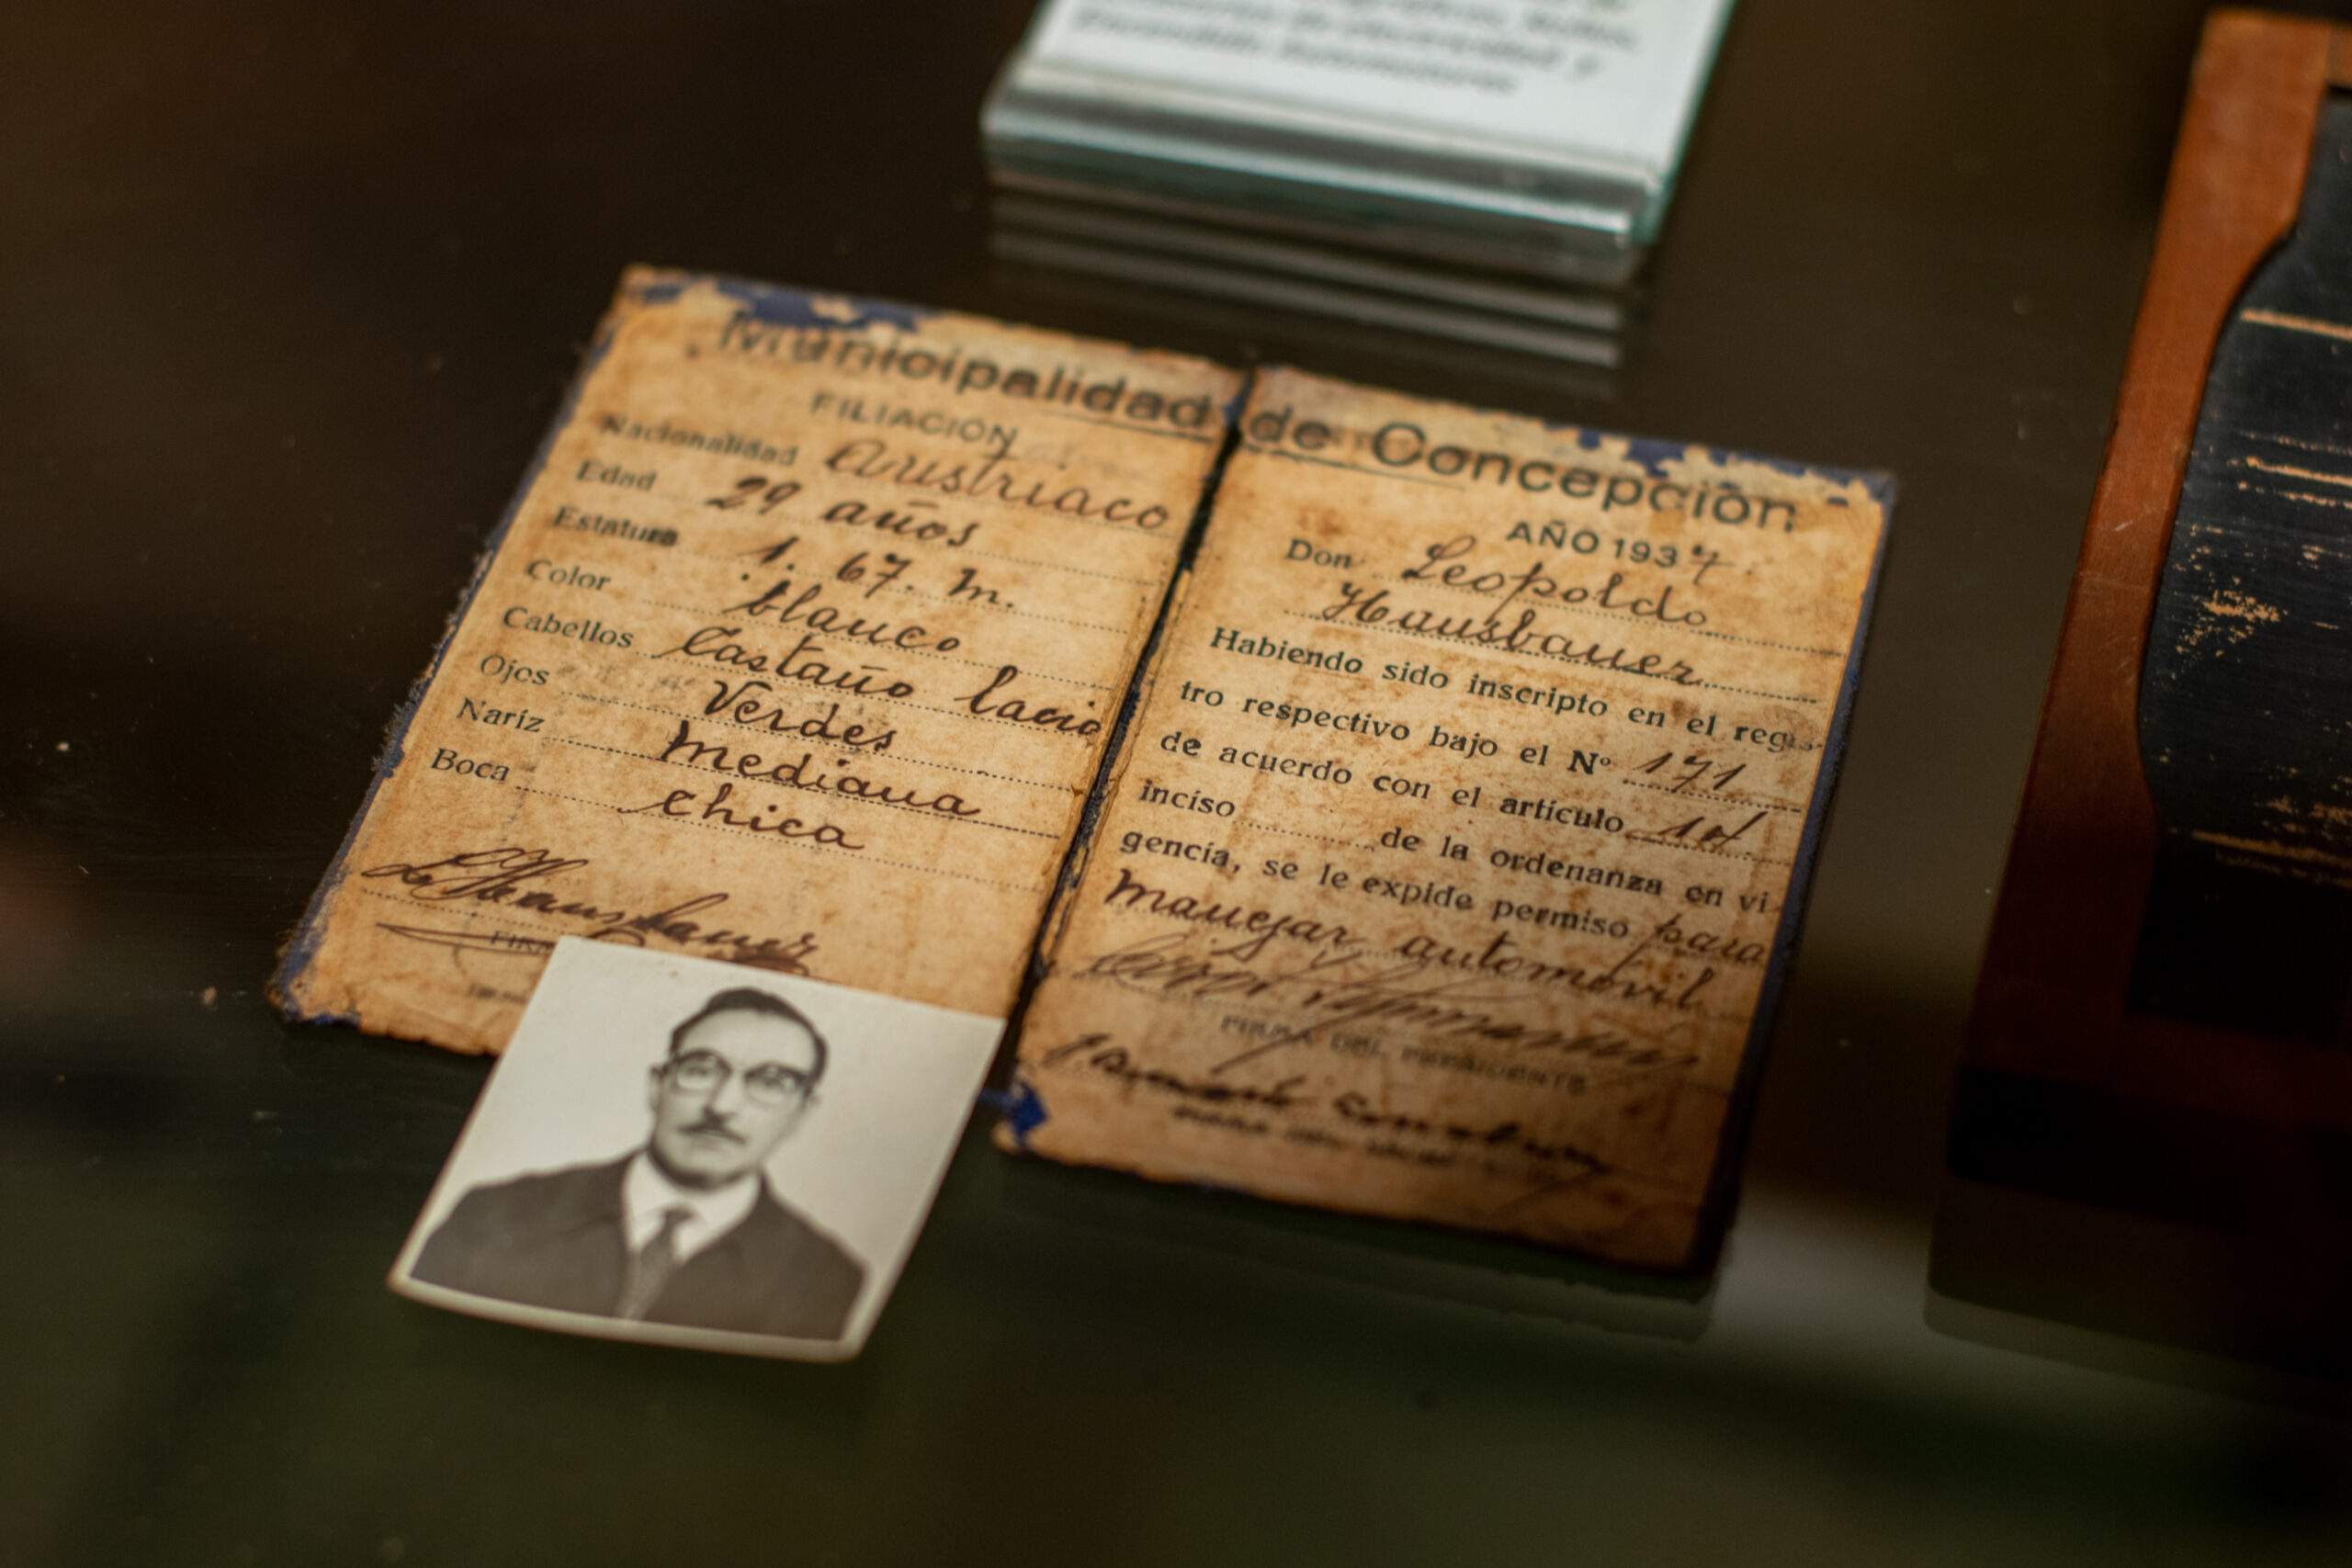 Encendido Automotores
Municipalidad de Concepción
FILIACIÓN
Nacionalidad Austriaco
Edad 29 años
Estatura 1.67. m.
Color blanco
Cabellos Castaño lacio
Ojos Verdes
Naríz Mediana
Boca chica
L. Hausbauer
AÑO 1937.
Don Leopoldo
Hausbauer
Habiendo sido inscripto en el regis-
tro respectivo bajo el Nº 171
de acuerdo con el artículo
inciso de la ordenanza en vi
gencia, se le expide permiso para
manejar automóvil
FIRMA DEL PRESIDENTE
FIRMA DEL